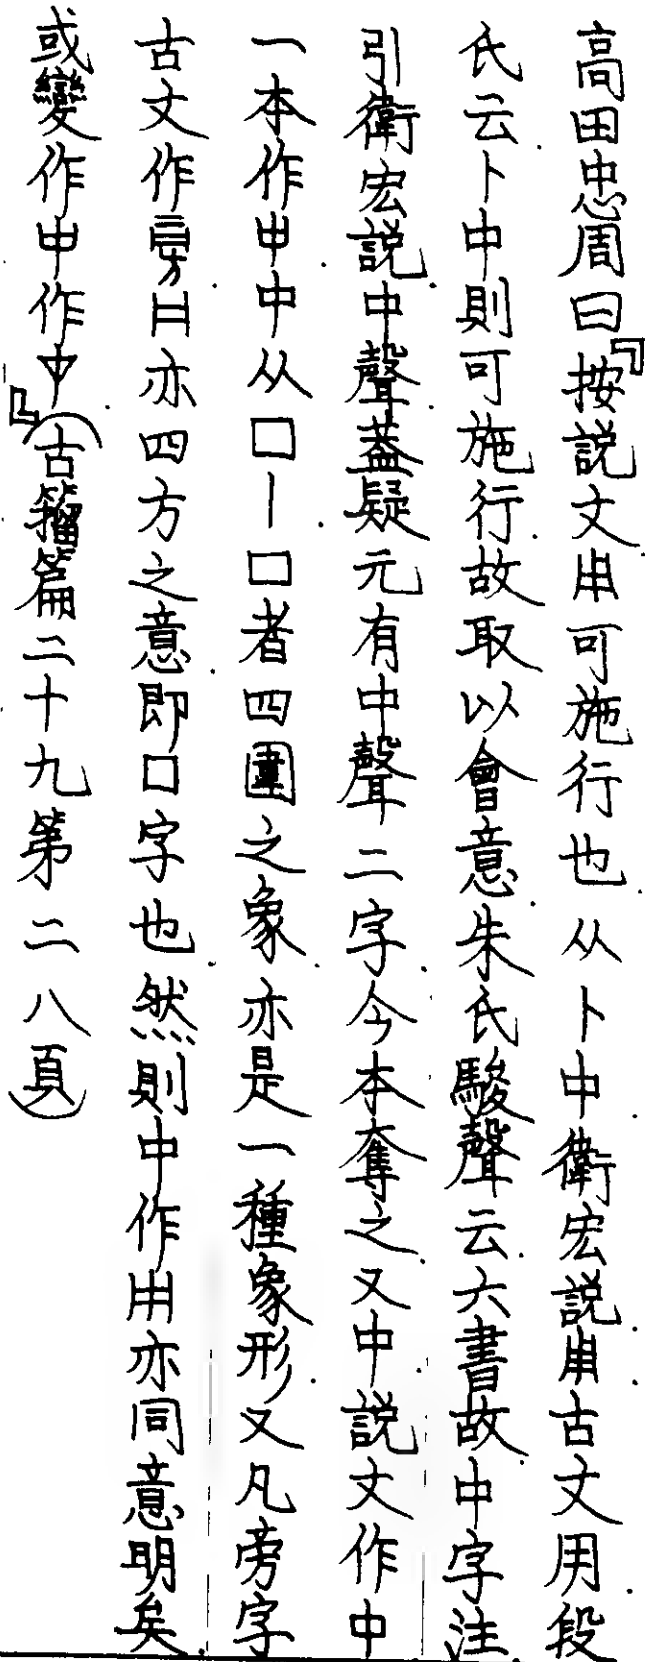 高田忠周曰『按説文用可施行也从卜中衛宏説𤰃古文用段
氏云卜中則可施行故取以會意朱氏駿聲云六書故中字注
引衛宏説中聲葢疑元有中聲二字今本奪之又中説文作中
一本作中从口丨口者四圍之象亦是一種象形又凡旁字
古文作亦四方之意即口字也然則中作亦同意明矣
或變作中作』(古籀篇二十九第二八頁)